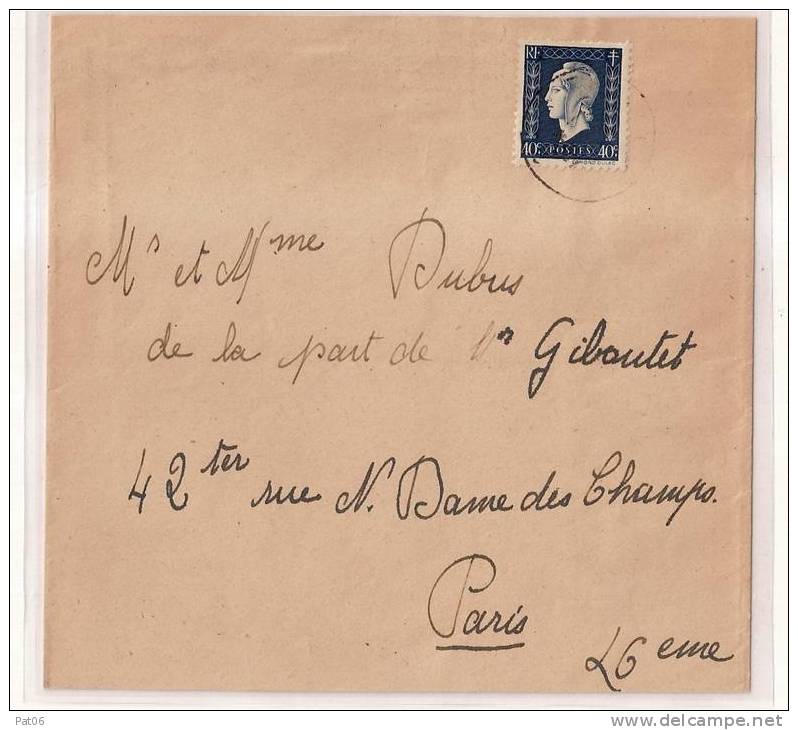 RF
40c POSTES 40c
EDMOND DULAC
Mr et Mme Dubus
de la part de Mr Giboutet
42 ter rue N. Dame des Champs.
Paris
6 eme
Pat06
delcampe.net